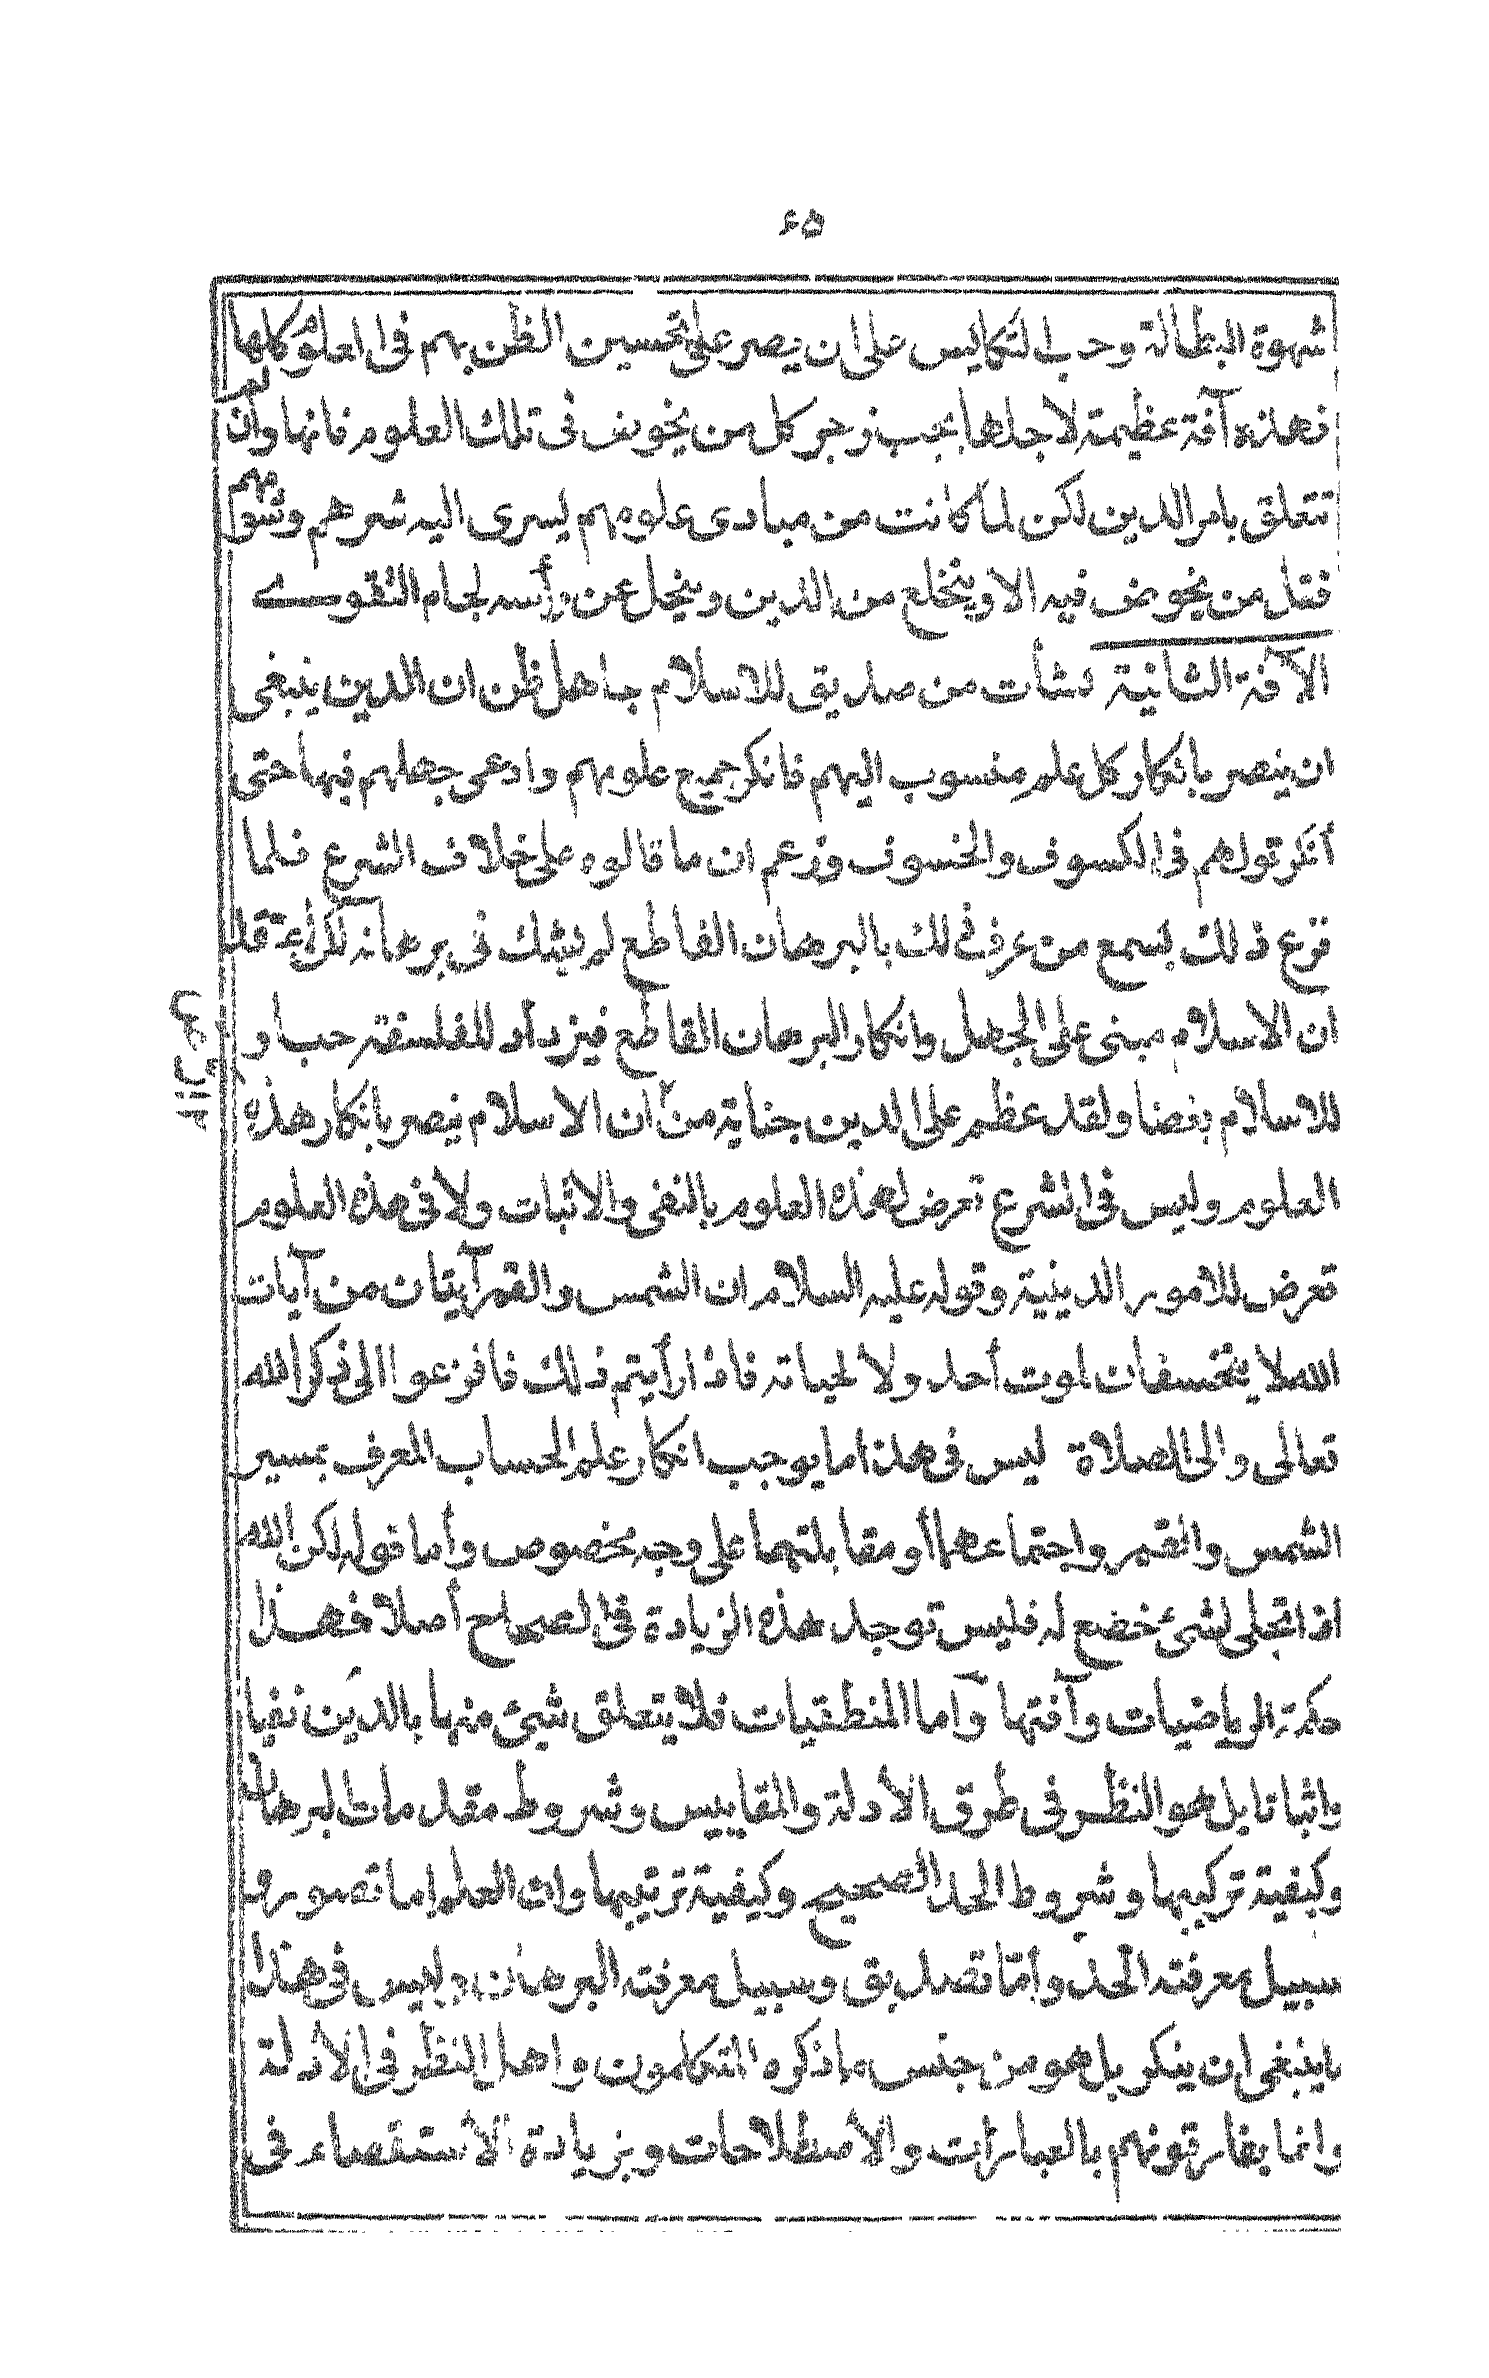 ٦٥
شهوة البطالة وحب التكايس على ان يصر على تحسين الظن بهم فى العلوم كلها
فهذه آفة عظيمة لاجلها يجب زجر كل من يخوض فى تلك العلوم فانها وان لم
تتعلق بامر الدين لكن لما كانت من مبادى علومهم يسرى اليه شرهم وشومهم
فقل من يخوض فيه الا وينخلع من الدين وينحل عن رأسه لجام التقوے
الآفة الثانية نشأت من صديق للاسلام جاهل ظن ان الدين ينبغى
ان ينصر بانكار كل علم منسوب اليهم فانكر جميع علومهم وادعى جهلهم فيها حتى
أنكر قولهم فى الكسوف والخسوف وزعم ان ما قالوه على خلاف الشرع فلما
قرع ذلك بسمع من عرف ذلك بالبرهان القاطع لم يشك فى برهانه لكن اعتقد
ان الاسلام مبنى على الجهل وانكار البرهان القاطع فيزداد للفلسفة حبا و
للاسلام بغضا ولقد عظم على الدين جناية من ان الاسلام ينصر بانكار هذه
العلوم وليس فى الشرع تعرض لهذه العلوم بالنفى والاثبات ولا فى هذه العلوم
تعرض للامور الدينية وقوله عليه السلام ان الشمس والقمر آيتان من آيات
الله لا ينخسفان لموت أحد ولا لحياته فاذا رأيتم ذلك فافزعوا الى ذكر الله
تعالى والى الصلاة ليس فى هذا ما يوجب انكار علم الحساب المعرف بمسير
الشمس والقمر واجتماعهما أو مقابلتهما على وجه مخصوص وأما قوله لكن الله
اذا تجلى لشئ خضع له فليس توجد هذه الزيادة فى الصحاح أصلا فهذا
حكمة الرياضيات وآفتها وآما المنطقيات فلا يتعلق شئ منها بالدين نفيا
واثباتا بل هو النظر فى طرق الادلة والمقاييس وشروط مقدمات البرهان
وكيفية تركيبها وشروط الحد الصحيح وكيفية ترتيبها وان العلم اما تصور و
سبيل معرفته الحد واما تصديق وسبيل معرفته البرهان وليس فى هذا
ما ينبغى ان ينكر بل هو من جنس ما ذكره المتكلمون واهل النظر فى الادلة
وانما يفارقونهم بالعبارات والاصطلاحات وبزيادة الاستقصاء فى